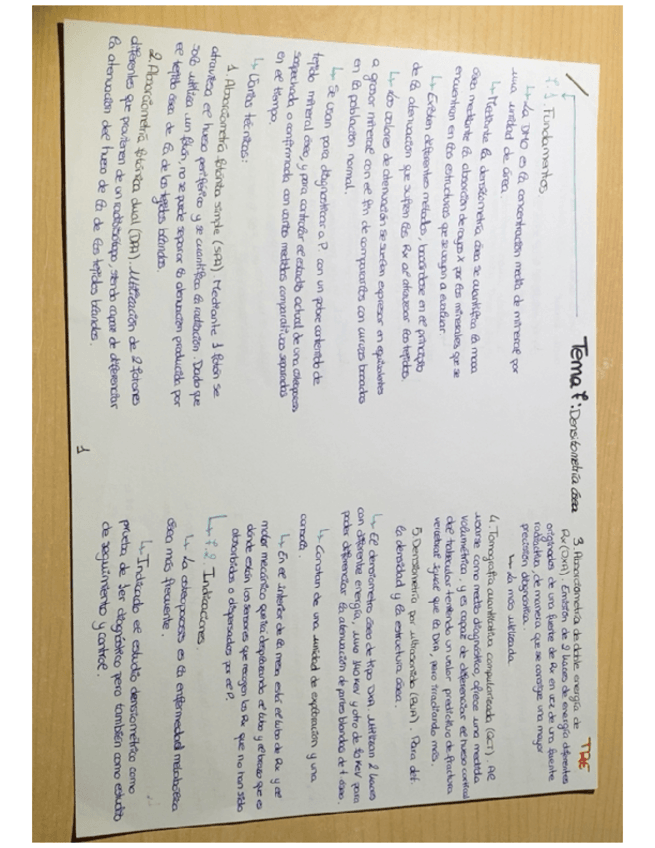 Tema 7: Densitometría ósea
TPE
7.1. Fundamentos
↳ La DMO es la concentración media de mineral por
una unidad de área.
↳ Mediante la densitometría ósea se cuantifica la masa
ósea mediante la absorción de rayos X por los minerales que se
encuentran en las estructuras que se vayan a evaluar.
↳ Existen diferentes métodos, basándose en el principio
de la atenuación que sufren los Rx al atravesar los tejidos.
↳ Los valores de atenuación se suelen expresar en equivalentes
a grosor mineral con el fin de compararlos con curvas basadas
en la población normal.
↳ Se usan para diagnosticar a P. con un pobre contenido de
tejido mineral óseo, y para controlar el estado actual de una osteoporosis
sospechada o confirmada con varias medidas comparativas separadas
en el tiempo.
↳ Varias técnicas:
1. Absorciometría fotónica simple (SPA). Mediante 1 fotón se
atraviesa el hueso periférico y se cuantifica la radiación. Dado que
solo utiliza un fotón, no se puede separar la atenuación producida por
el tejido óseo de la de los tejidos blandos.
2. Absorciometría fotónica dual (DPA). Utilización de 2 fotones
diferentes que provienen de un radioisótopo siendo capaz de diferenciar
la atenuación del hueso de la de los tejidos blandos.
1
3. Absorciometría de doble energía de
Rx (DXA). Emisión de 2 haces de energía diferentes
originales de una fuente de Rx en vez de una fuente
radiactiva de manera que se consigue una mayor
precisión diagnóstica.
↳ La más utilizada.
4. Tomografía cuantitativa computarizada (QCT). Al
usarse como medio diagnóstico, ofrece una medida
volumétrica y es capaz de diferenciar el hueso cortical
del trabecular teniendo un valor predictivo de fractura
vertebral igual que la DXA, pero irradiando más.
5. Densitometría por ultrasonido (BUA). Para det.
la densidad y la estructura ósea.
↳ El densitómetro óseo de tipo DXA utilizan 2 haces
con diferente energía, uno 140 KeV y otro de 70 KeV para
poder diferenciar la atenuación de partes blandas de t. óseo.
↳ Constan de una unidad de exploración y una
consola.
↳ En el interior de la mesa está el tubo de Rx y el
motor mecánico que irá desplazando el tubo y el brazo que es
donde están los sensores que recogen los Rx que no han sido
absorbidos o dispersados por el P.
↳ 7.2. Indicaciones.
↳ La osteoporosis es la enfermedad metabólica
ósea más frecuente.
↳ Indicado el estudio densitométrico como
prueba de 1er diagnóstico pero también como estudio
de seguimiento y control.